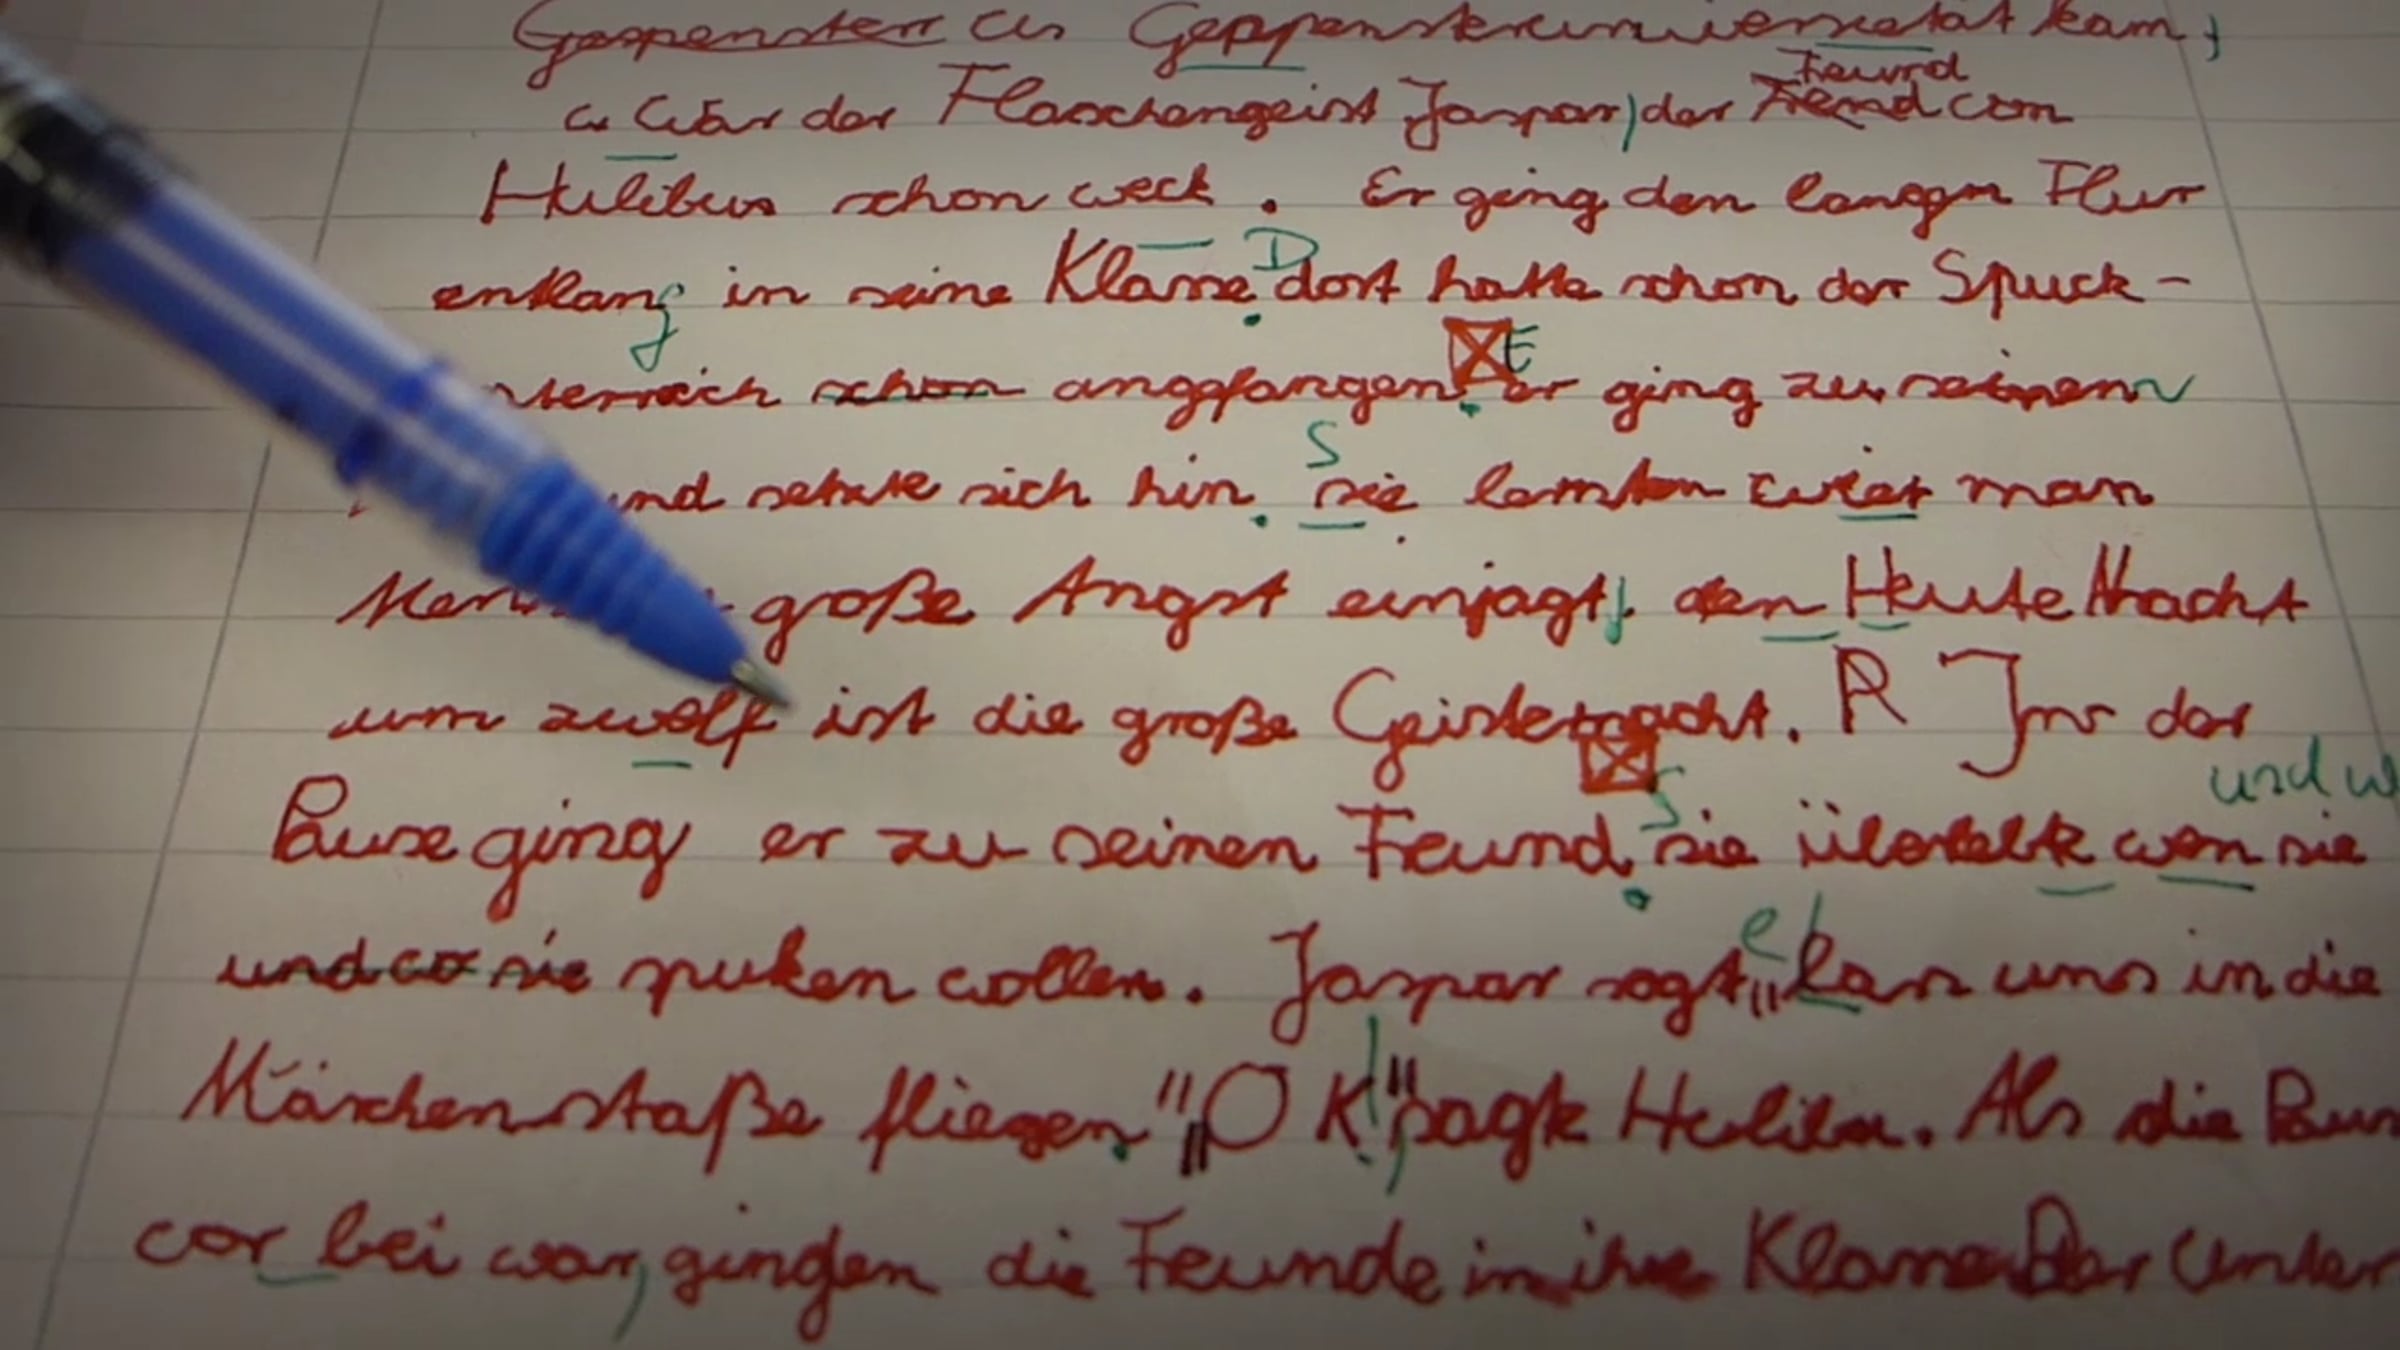 Geppensteruniversetät kam,
Freund
war der Flaschengeist Jaspar, der com
Hulibus schon weck. Er ging den langen Flur
entlang in seine Klasse. D dort hatte schon der Spuck-
schon angefangen. E er ging zu seinem
und setzte sich hin. S sie lernten wiet man
große Angst einjagt, den Heute Nacht
um zwolf ist die große Geisternacht. R Ins der
und w
Pause ging er zu seinen Feund. S sie überlekte wen sie
und wo sie spuken wollen. Jaspar sagt „ las uns in die
Märchenstaße fliegen." „O K!", sagte Hulibu. Als die Paus
vor bei war, gingen die Feunde in ihre Klasse Der Unter